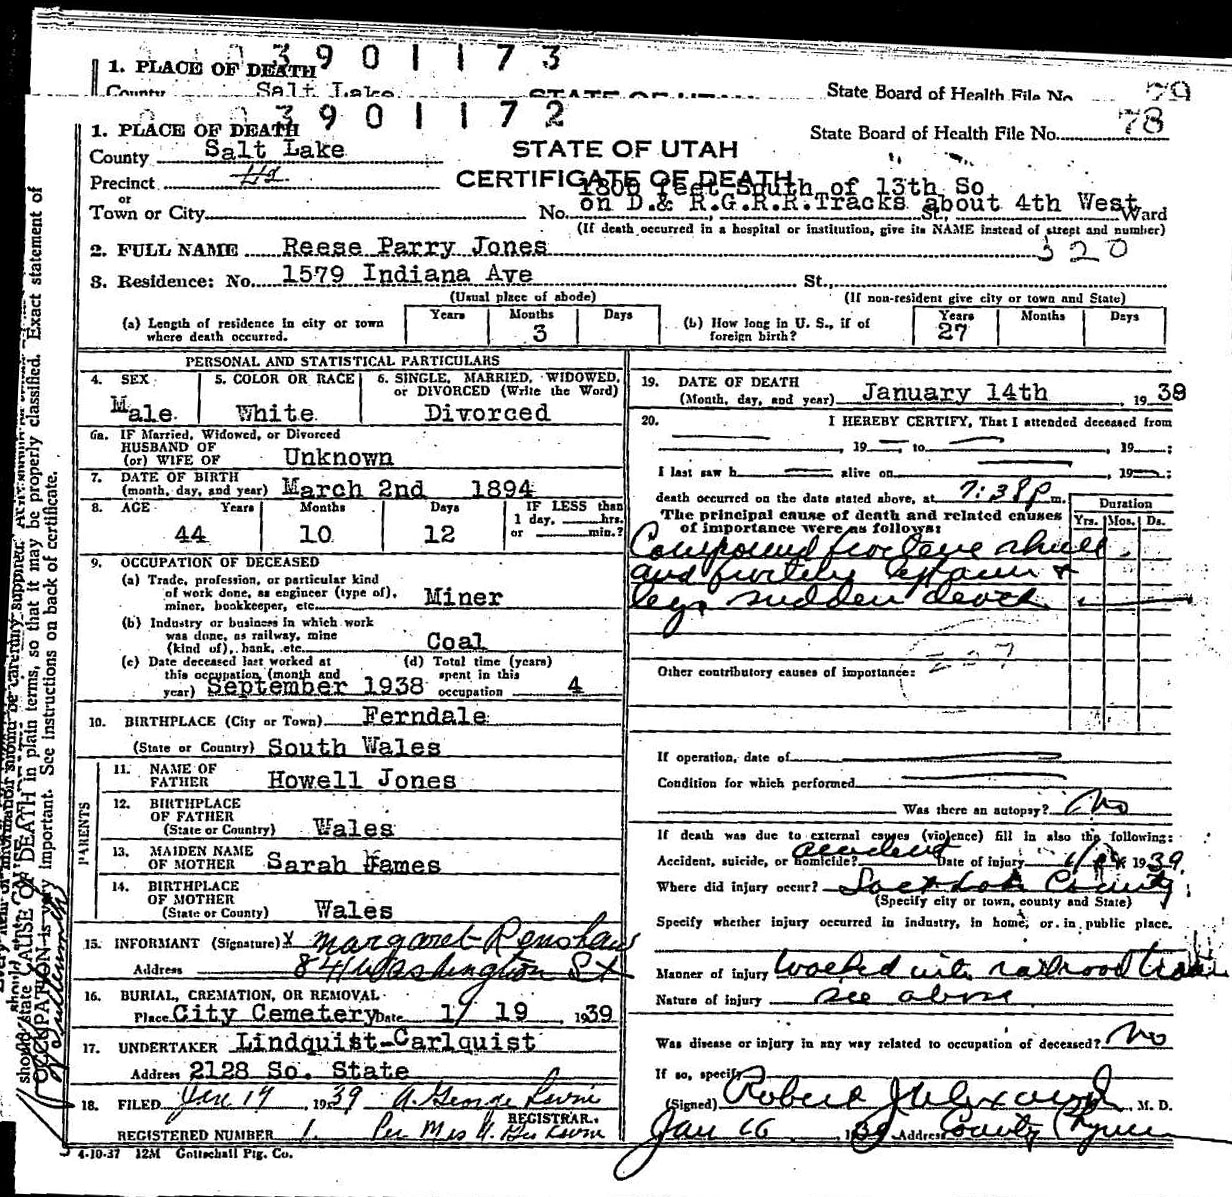 3901173
1. PLACE OF DEATH
County Salt Lake STATE OF UTAH State Board of Health File No. 79
3901172
1. PLACE OF DEATH State Board of Health File No. 78
County Salt Lake STATE OF UTAH
Precinct CERTIFICATE OF DEATH
1800 feet South of 13th So
or
Town or City No. on D.& R.G.R.R.Tracks St., about 4th West Ward
(If death occurred in a hospital or institution, give its NAME instead of street and number)
2. FULL NAME Reese Parry Jones 320
3. Residence: No. 1579 Indiana Ave St.,
(Usual place of abode) (If non-resident give city or town and State)
(a) Length of residence in city or town where death occurred. Years Months 3 Days (b) How long in U. S., if of foreign birth? Years 27 Months Days
PERSONAL AND STATISTICAL PARTICULARS
4. SEX Male
5. COLOR OR RACE White
6. SINGLE, MARRIED, WIDOWED, or DIVORCED (Write the Word) Divorced
6a. IF Married, Widowed, or Divorced
HUSBAND OF
(or) WIFE OF Unknown
7. DATE OF BIRTH
(month, day, and year) March 2nd 1894
8. AGE Years Months Days IF LESS than
1 day, hrs.
44 10 12 or min.?
9. OCCUPATION OF DECEASED
(a) Trade, profession, or particular kind
of work done, as engineer (type of),
miner, bookkeeper, etc. Miner
(b) Industry or business in which work
was done, as railway, mine
(kind of), bank, etc. Coal
(c) Date deceased last worked at
this occupation (month and
year) September 1938
(d) Total time (years)
spent in this
occupation 4
10. BIRTHPLACE (City or Town) Ferndale
(State or Country) South Wales
PARENTS
11. NAME OF
FATHER Howell Jones
12. BIRTHPLACE
OF FATHER
(State or Country) Wales
13. MAIDEN NAME
OF MOTHER Sarah James
14. BIRTHPLACE
OF MOTHER
(State or Country) Wales
15. INFORMANT (Signature) X Margaret Renshaw
Address 841 Washington St
16. BURIAL, CREMATION, OR REMOVAL
Place City Cemetery Date 1/ 19 1939
17. UNDERTAKER Lindquist-Carlquist
Address 2128 So. State
18. FILED Jan 19, 1939 A. George
REGISTRAR.
REGISTERED NUMBER 1. Per Mrs A. Geo
4-10-37 12M Gottschall Ptg. Co.
19. DATE OF DEATH
(Month, day, and year) January 14th, 1939
20. I HEREBY CERTIFY, That I attended deceased from
, 19 to , 19 :
I last saw h alive on , 19 :
death occurred on the date stated above, at 7:38 p m.
The principal cause of death and related causes
of importance were as follows:
Duration
Yrs. Mos. Ds.
Compound fracture skull
and
legs sudden death
Other contributory causes of importance:
If operation, date of
Condition for which performed
Was there an autopsy? No
If death was due to external causes (violence) fill in also the following:
Accident, suicide, or homicide? accident Date of injury 1/14 1939
Where did injury occur? Salt Lake County
(Specify city or town, county and State)
Specify whether injury occurred in industry, in home, or in public place.
Manner of injury railroad train
Nature of injury see above
Was disease or injury in any way related to occupation of deceased? No
If so, specify
(Signed) Robert J Alexander, M. D.
Jan 16, 1939 Address County
should state CAUSE OF DEATH in plain terms, so that it may be properly classified. Exact statement of
OCCUPATION is very important. See instructions on back of certificate.